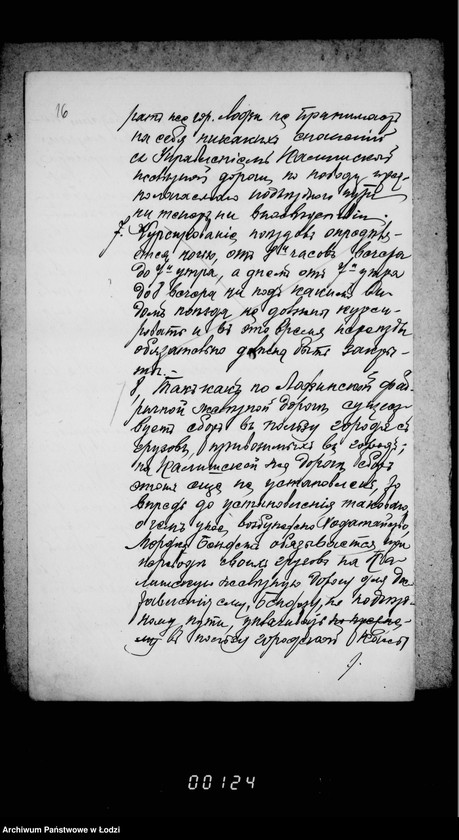 16
ратъ же гор. Лодзи не принимаетъ
на себя никакихъ сношеній
съ Управленіемъ Калишской
желѣзной дороги по поводу пред-
полагаемаго подъѣзднаго пути
ни теперь, ни впослѣдствіи.
7. Курсированіе поѣздовъ опредѣ-
ляется ночью, отъ часовъ вечера
до 7 утра, а днемъ отъ 7 утра
до 8 вечера ни подъ какимъ ви-
домъ поѣзда не должны курси-
ровать и въ это время переѣзды
обязательно должны быть закры-
ты.
8. Такъ какъ по Лодзинской Фаб-
ричной желѣзной дорогѣ сущест-
вуетъ сборъ въ пользу города съ
грузовъ, привозимыхъ въ городъ;
на Калишской же дорогѣ сборъ
этотъ еще не установленъ, то
впредь до установленія такового
о чемъ уже возбуждено ходатайство
Мордка Бендетъ обязывается при
перевозѣ своихъ грузовъ на Ка-
лишскую желѣзную дорогу для до-
ставленія ему, Бендету, по подъѣзд-
ному пути, уплачивать
въ пользу городской кассы
00124
Archiwum Państwowe w Łodzi